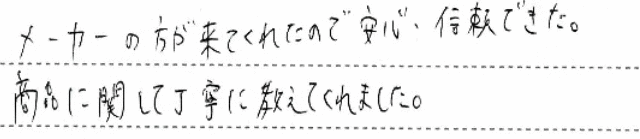 メーカーの方が来てくれたので安心、信頼できた。
商品に関して丁寧に教えてくれました。